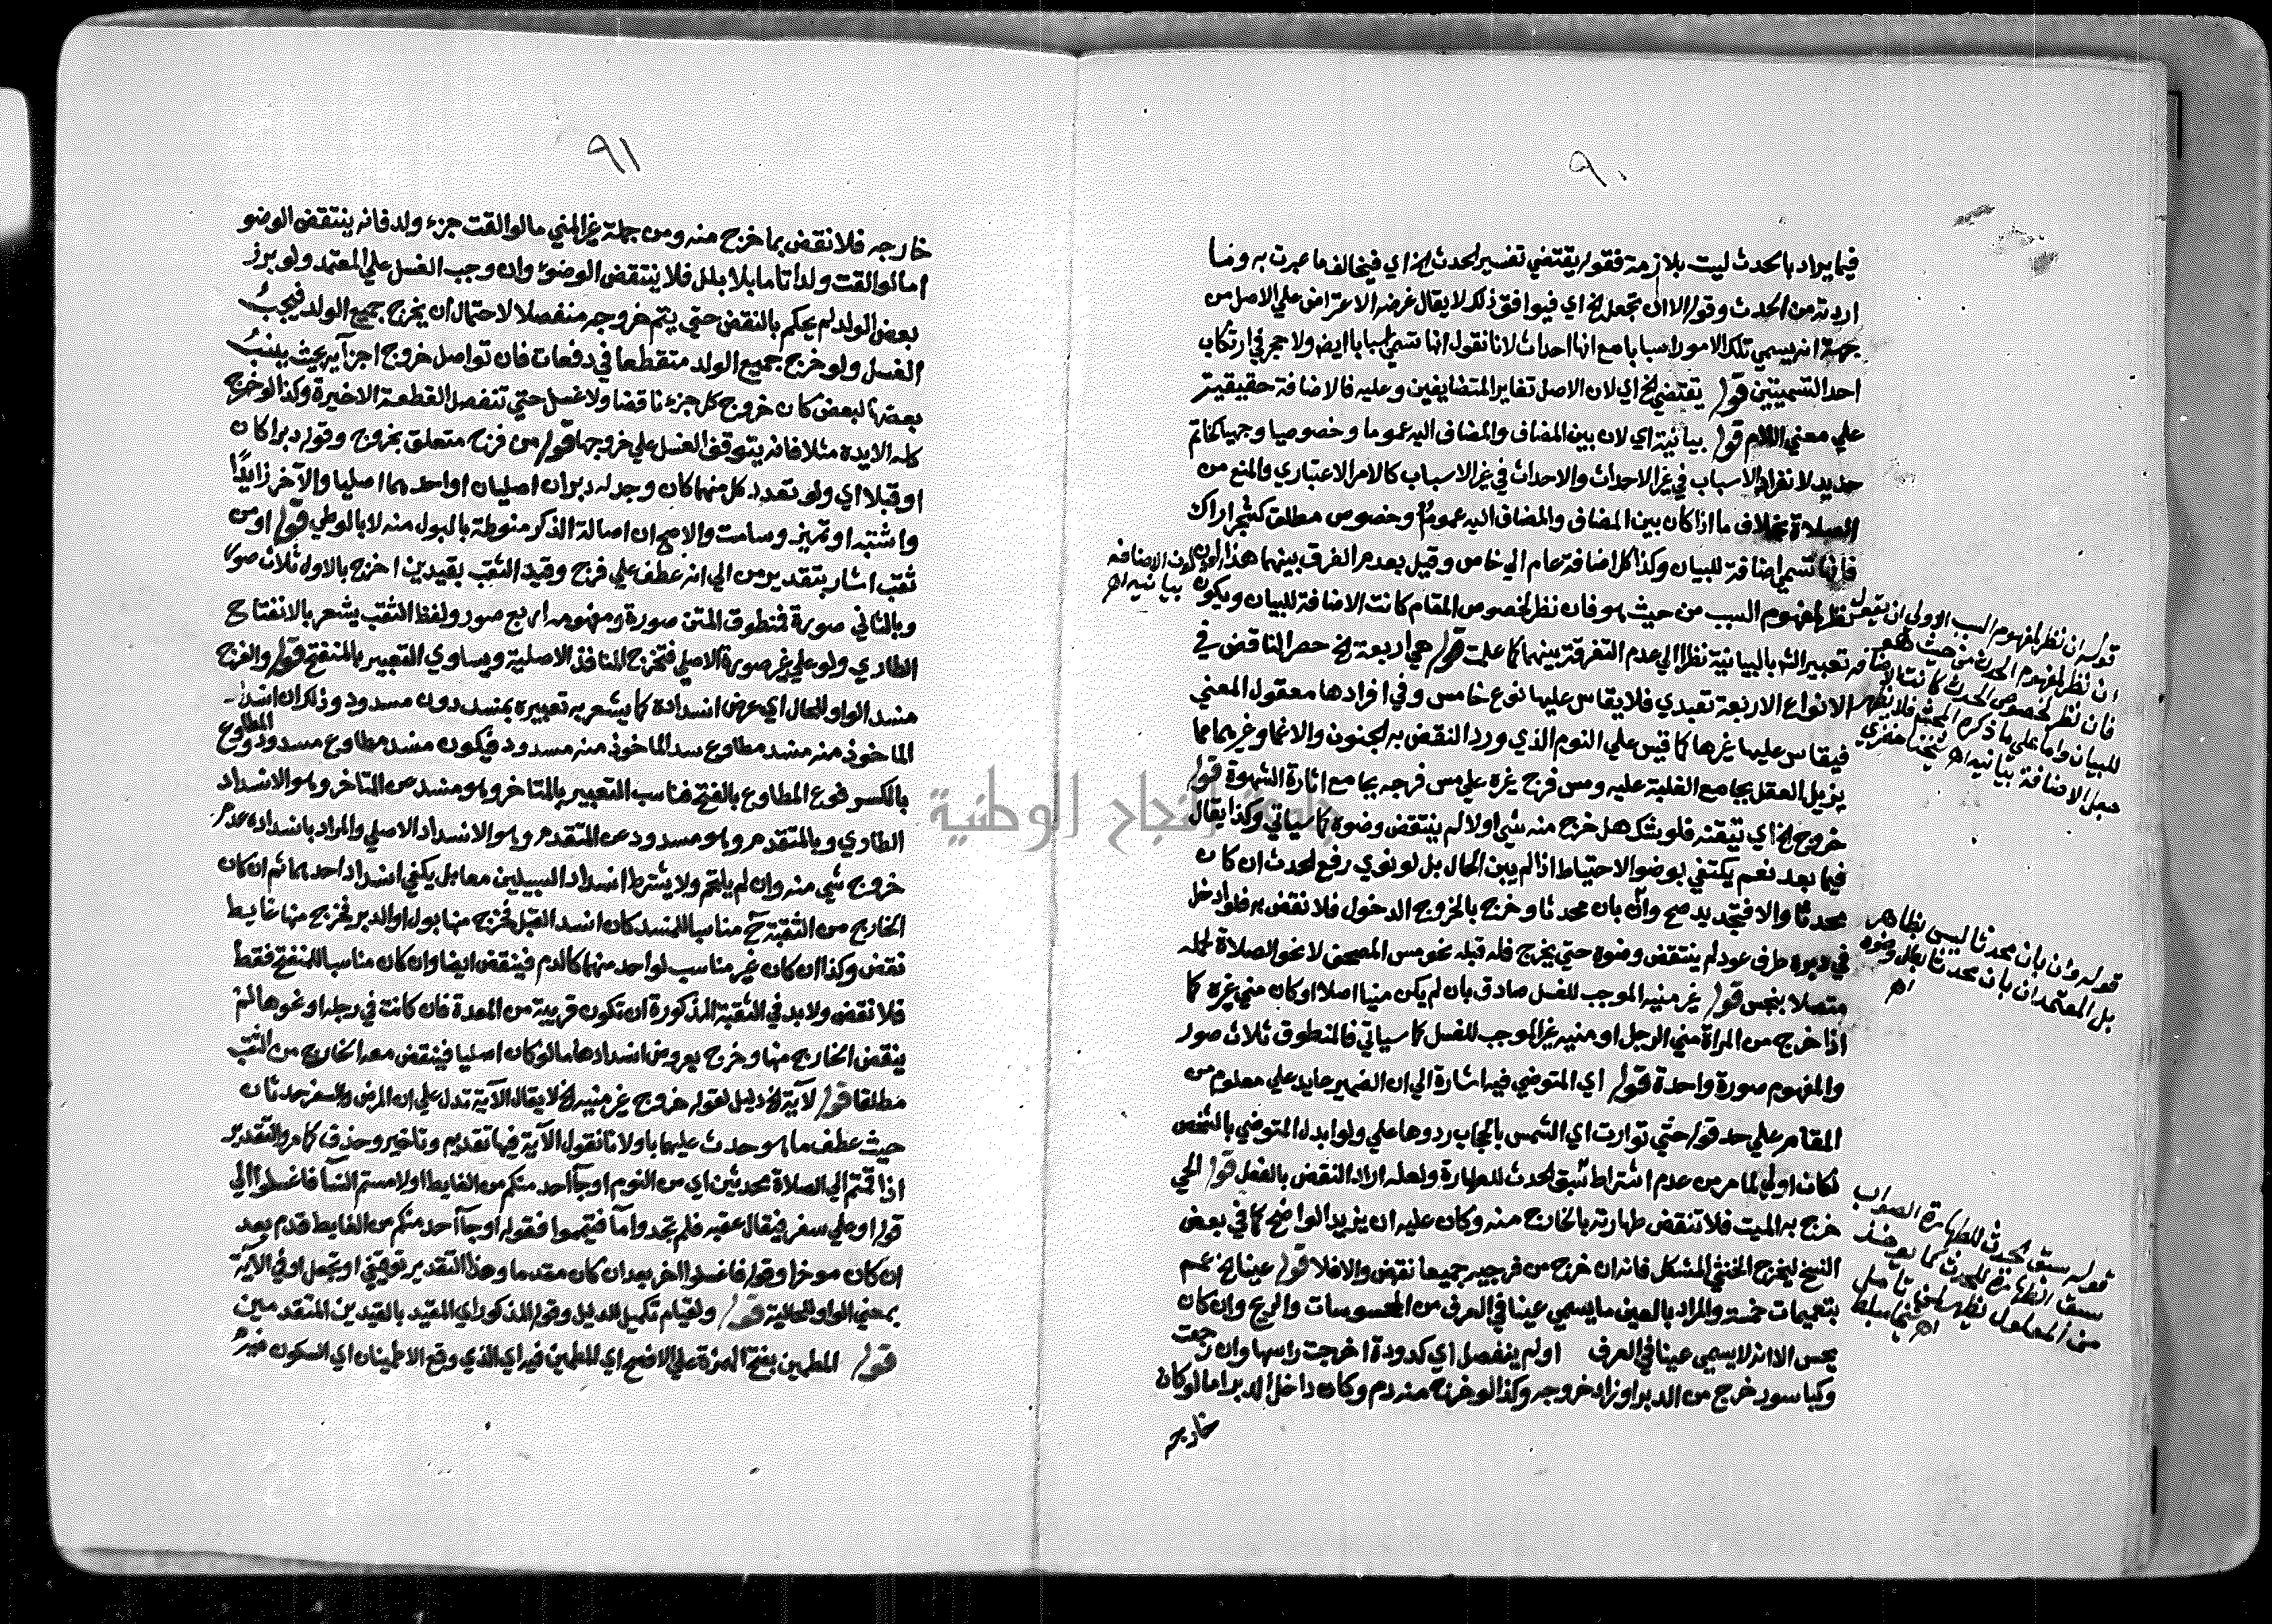 ٩٠
فيما يراد بالحدث ليت بلازمة فقوله يقتضي تفسير الحدث الخ اي فيخالف ما عبرت به وما
اردته من الحدث وقوله الا ان تجعل الخ اي فيوافق ذلك لا يقال غرضه الاعتراض علي الاصل من
جهة انه يسمي تلك الامور اسبابا مع انها احداث لانا نقول انها تسمي اسبابا ايضا ولا حجر في ارتكاب
احد التسميتين قوله يقتضي الخ اي لان الاصل تغاير المتضايفين وعليه فالاضافة حقيقية
علي معني اللام قوله بيانية اي لان بين المضاف والمضاف اليه عموما وخصوصا وجهيا كخاتم
حديد لانفراد الاسباب في غير الاحداث والاحداث في غير الاسباب كالامر الاعتباري والمنع من
الصلاة بخلاف ما اذا كان بين المضاف والمضاف اليه عموم وخصوص مطلق كشجر اراك
فانها تسمي اضافة للبيان وكذا كل اضافة عام الي خاص وقيل بعدم الفرق بينهما هذا
نظر لمفهوم السبب من حيث هو فان نظر لخصوص المقام كانت الاضافة للبيان ويكون
تعبير الشم بالبيانية نظرا الي عدم التفرقة بينهما كما علمت قوله هي اربعة الخ حصر الناقض في
الانواع الاربعة تعبدي فلا يقاس عليها نوع خامس وفي افرادها معقول المعني
فيقاس عليها غيرها كما قيس علي النوم الذي ورد النقض به الجنون والاغما وغيرهما مما
يزيل العقل بجامع الغلبة عليه ومس فرج غيره علي مس فرجه بجامع اثارة الشهوة قوله
خروج الخ اي تيقنه فلو شك هل خرج منه شي اولا لم ينتقض وضوه كما سياتي وكذا يقال
فيما بعد نعم يكتفي بوضو الاحتياط اذا لم يبن الحال بل لو نوي رفع الحدث ان كان
محدثا والا فتجديد صح وان بان محدثا وخرج بالخروج الدخول فلا نقض به فلو ادخل
في دبره طرف عود لم ينتقض وضوه حتي يخرج فله قبله نحو مس المصحف لا نحو الصلاة لحمله
متصلا بنجس قوله غير منيه الموجب للغسل صادق بان لم يكن منيا اصلا او كان مني غيره كما
اذا خرج من المراة مني الرجل او منيه غير الموجب للغسل كما سياتي فالمنطوق ثلاث صور
والمفهوم صورة واحدة قوله اي المتوضي فيه اشارة الي ان الضمير عايد علي معلوم من
المقام علي حد قوله حتي توارت اي الشمس بالحجاب ردوها علي ولو ابدل المتوضي بالشخص
لكان اولي لما مر من عدم اشتراط سبق الحدث للطهارة ولعله اراد النقض بالفعل قوله الحي
خرج به الميت فلا تنقض طهارته بالخارج منه وكان عليه ان يزيد الواضح كما في بعض
النسخ ليخرج الخنثي المشكل فانه ان خرج من فرجيه جميعا نقض والا فلا قوله عينا الخ عمم
بتعميمات خمسة والمراد بالعين ما يسمي عينا في العرف من المحسوسات والريح وان كان
يحس الا انه لا يسمي عينا في العرف او لم ينفصل اي كدودة اخرجت راسها وان رجعت
وكباسور خرج من الدبر او زاد خروجه وكذا لو خرج منه دم وكان داخل الدبر اما لو كان
خارجه
لان الاضافة
بيانيه اهـ
قوله ان نظر لمفهوم السبب الاولي ان يقول
ان نظر لمفهوم الحدث من حيث هو
فان نظر لخصوص الحدث كانت الاضافة
للبيان واما علي ما ذكره المحشي فلا يظهر
جعل الاضافة بيانيه اهـ شيخنا
قوله وان بان محدثا ليس بظاهر
بل المعتمد ان بان محدثا بطل وضوه
اهـ
قوله سبق الحدث للطهارة الصواب
سبق الطهارة للحدث كما
اهـ
٩١
خارجه فلا نقض بما خرج منه ومن جملة غير المني ما لو القت جزء ولد فانه ينتقض الوضو
اما لو القت ولدا تاما بلا بلل فلا ينتقض الوضوء وان وجب الغسل علي المعتمد ولو برز
بعض الولد لم يحكم بالنقض حتي يتم خروجه منفصلا لاحتمال ان يخرج جميع الولد فيجب
الغسل ولو خرج جميع الولد متقطعا في دفعات فان تواصل خروج اجزآيه بحيث ينسب
بعضها لبعض كان خروج كل جزء ناقضا ولا غسل حتي تنفصل القطعة الاخيرة وكذا لو خرج
كله الا يده مثلا فانه يتوقف الغسل علي خروجها قوله من فرج متعلق بخروج وقوله دبرا كان
او قبلا اي ولو تعدد كل منهما كان وجد له دبران اصليان او احدهما اصليا والآخر زايدًا
واشتبه او تميز وسامت والاصح ان اصالة الذكر منوطة بالبول منه لا بالوطي قوله او من
ثقب اشار بتقدير من الي انه عطف علي فرج وقيد الثقب بقيدين اخرج بالاول ثلاث صور
وبالثاني صورة فمنطوق المتن صورة ومفهومه اربع صور ولفظ الثقب يشعر بالانفتاح
الطاري ولو علي غير صورة الاصلي فتخرج المنافذ الاصلية ويساوي التعبير بالمنفتح قوله والفرج
منسد الواو للحال اي عرض انسداده كما يشعر به تعبيره بمنسد دون مسدود وذلك ان انسد
الماخوذ منه منسد مطاوع سد الماخوذ منه مسدود فيكون منسد مطاوع مسدود والمطاوع
بالكسر فرع المطاوع بالفتح فناسب التعبير بالمتاخر وهو منسد عن المتاخر وهو الانسداد
الطاري وبالمتقدم وهو مسدود عن المتقدم وهو الانسداد الاصلي والمراد بانسداده عدم
خروج شي منه وان لم يلتحم ولا يشترط انسداد السبيلين معا بل يكفي انسداد احدهما ثم ان كان
الخارج من الثقبة ح مناسبا للمنسد كان انسد القبل فخرج منها بول او الدبر فخرج منها غايط
نقض وكذا ان كان غير مناسب لواحد منهما كالدم فينقض ايضا وان كان مناسبا للمنفتح فقط
فلا نقض ولا بد في الثقبة المذكورة ان تكون قريبة من المعدة فان كانت في رجله او نحوها لم
ينقض الخارج منها وخرج بعروض انسدادها ما لو كان اصليا فينقض معه الخارج من الثقب
مطلقا قوله لآية الخ دليل لقوله خروج غير منيه الخ لا يقال الآية تدل علي ان المرض والسفر حدثان
حيث عطف ما هو حدث عليهما باو لانا نقول الآية فيها تقديم وتاخير وحذف كما مر والتقدير
اذا قمتم الي الصلاة محدثين اي من النوم او جآ احد منكم من الغايط او لامستم النسآ فاغسلوا الي
قوله او علي سفر فيقال عقبه فلم تجدوا مآ فتيمموا فقوله او جآ احد منكم من الغايط قدم بعد
ان كان موخرا وقوله فاغسلوا اخر بعد ان كان مقدما وهذا التقدير توقيفي او تجعل او في الآية
بمعني الواو الحالية قوله ولقيام تكميل للدليل وقوله المذكور اي المقيد بالقيدين المتقدمين
قوله المطمين بفتح الهمزة علي الافصح اي للمطمين فيه اي الذي وقع الاطمينان اي السكون فيه
جامعة النجاح الوطنية